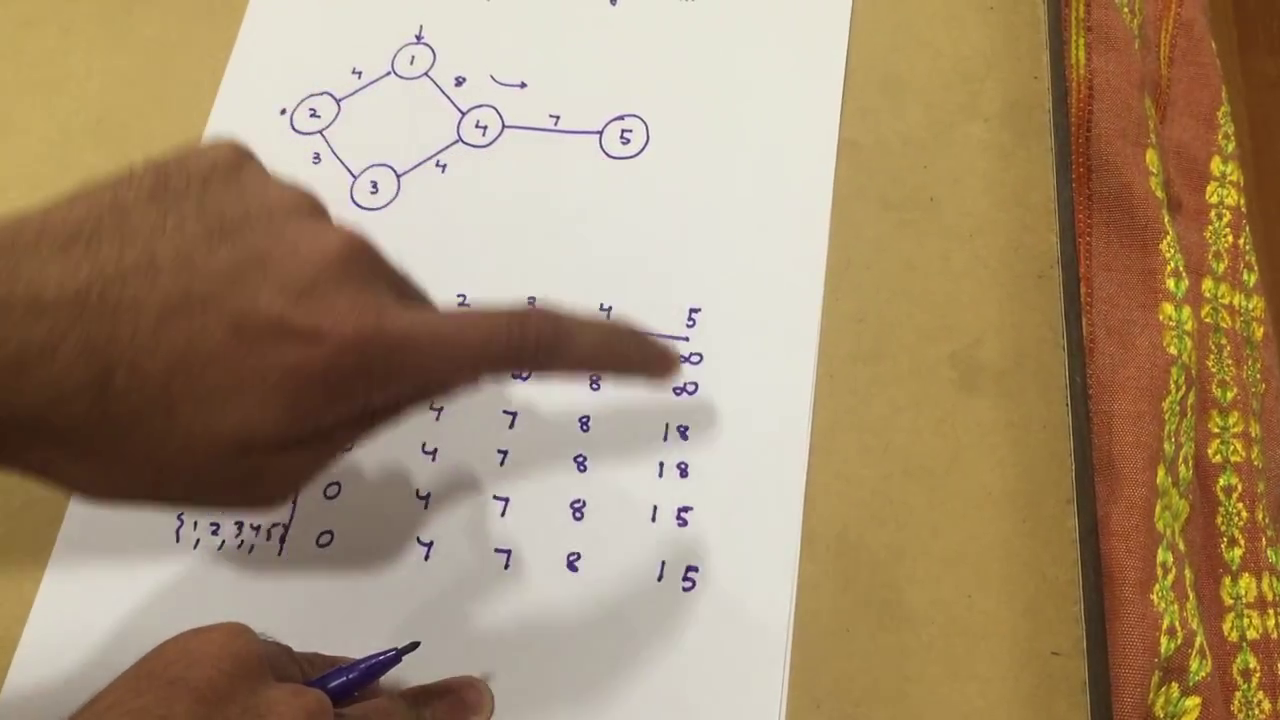 1
4
8
2
4
7
5
3
4
3
2 3 4 5
∞
8 ∞
4 7 8 18
4 7 8 18
0 4 7 8 15
{1,2,3,4,5} 0 4 7 8 15